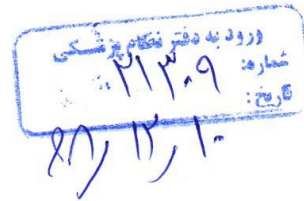 ورود به دفتر نظام پزشکی
شماره: ۲۱۳۰۹
تاریخ:
۸۸/۱۲/۱۰